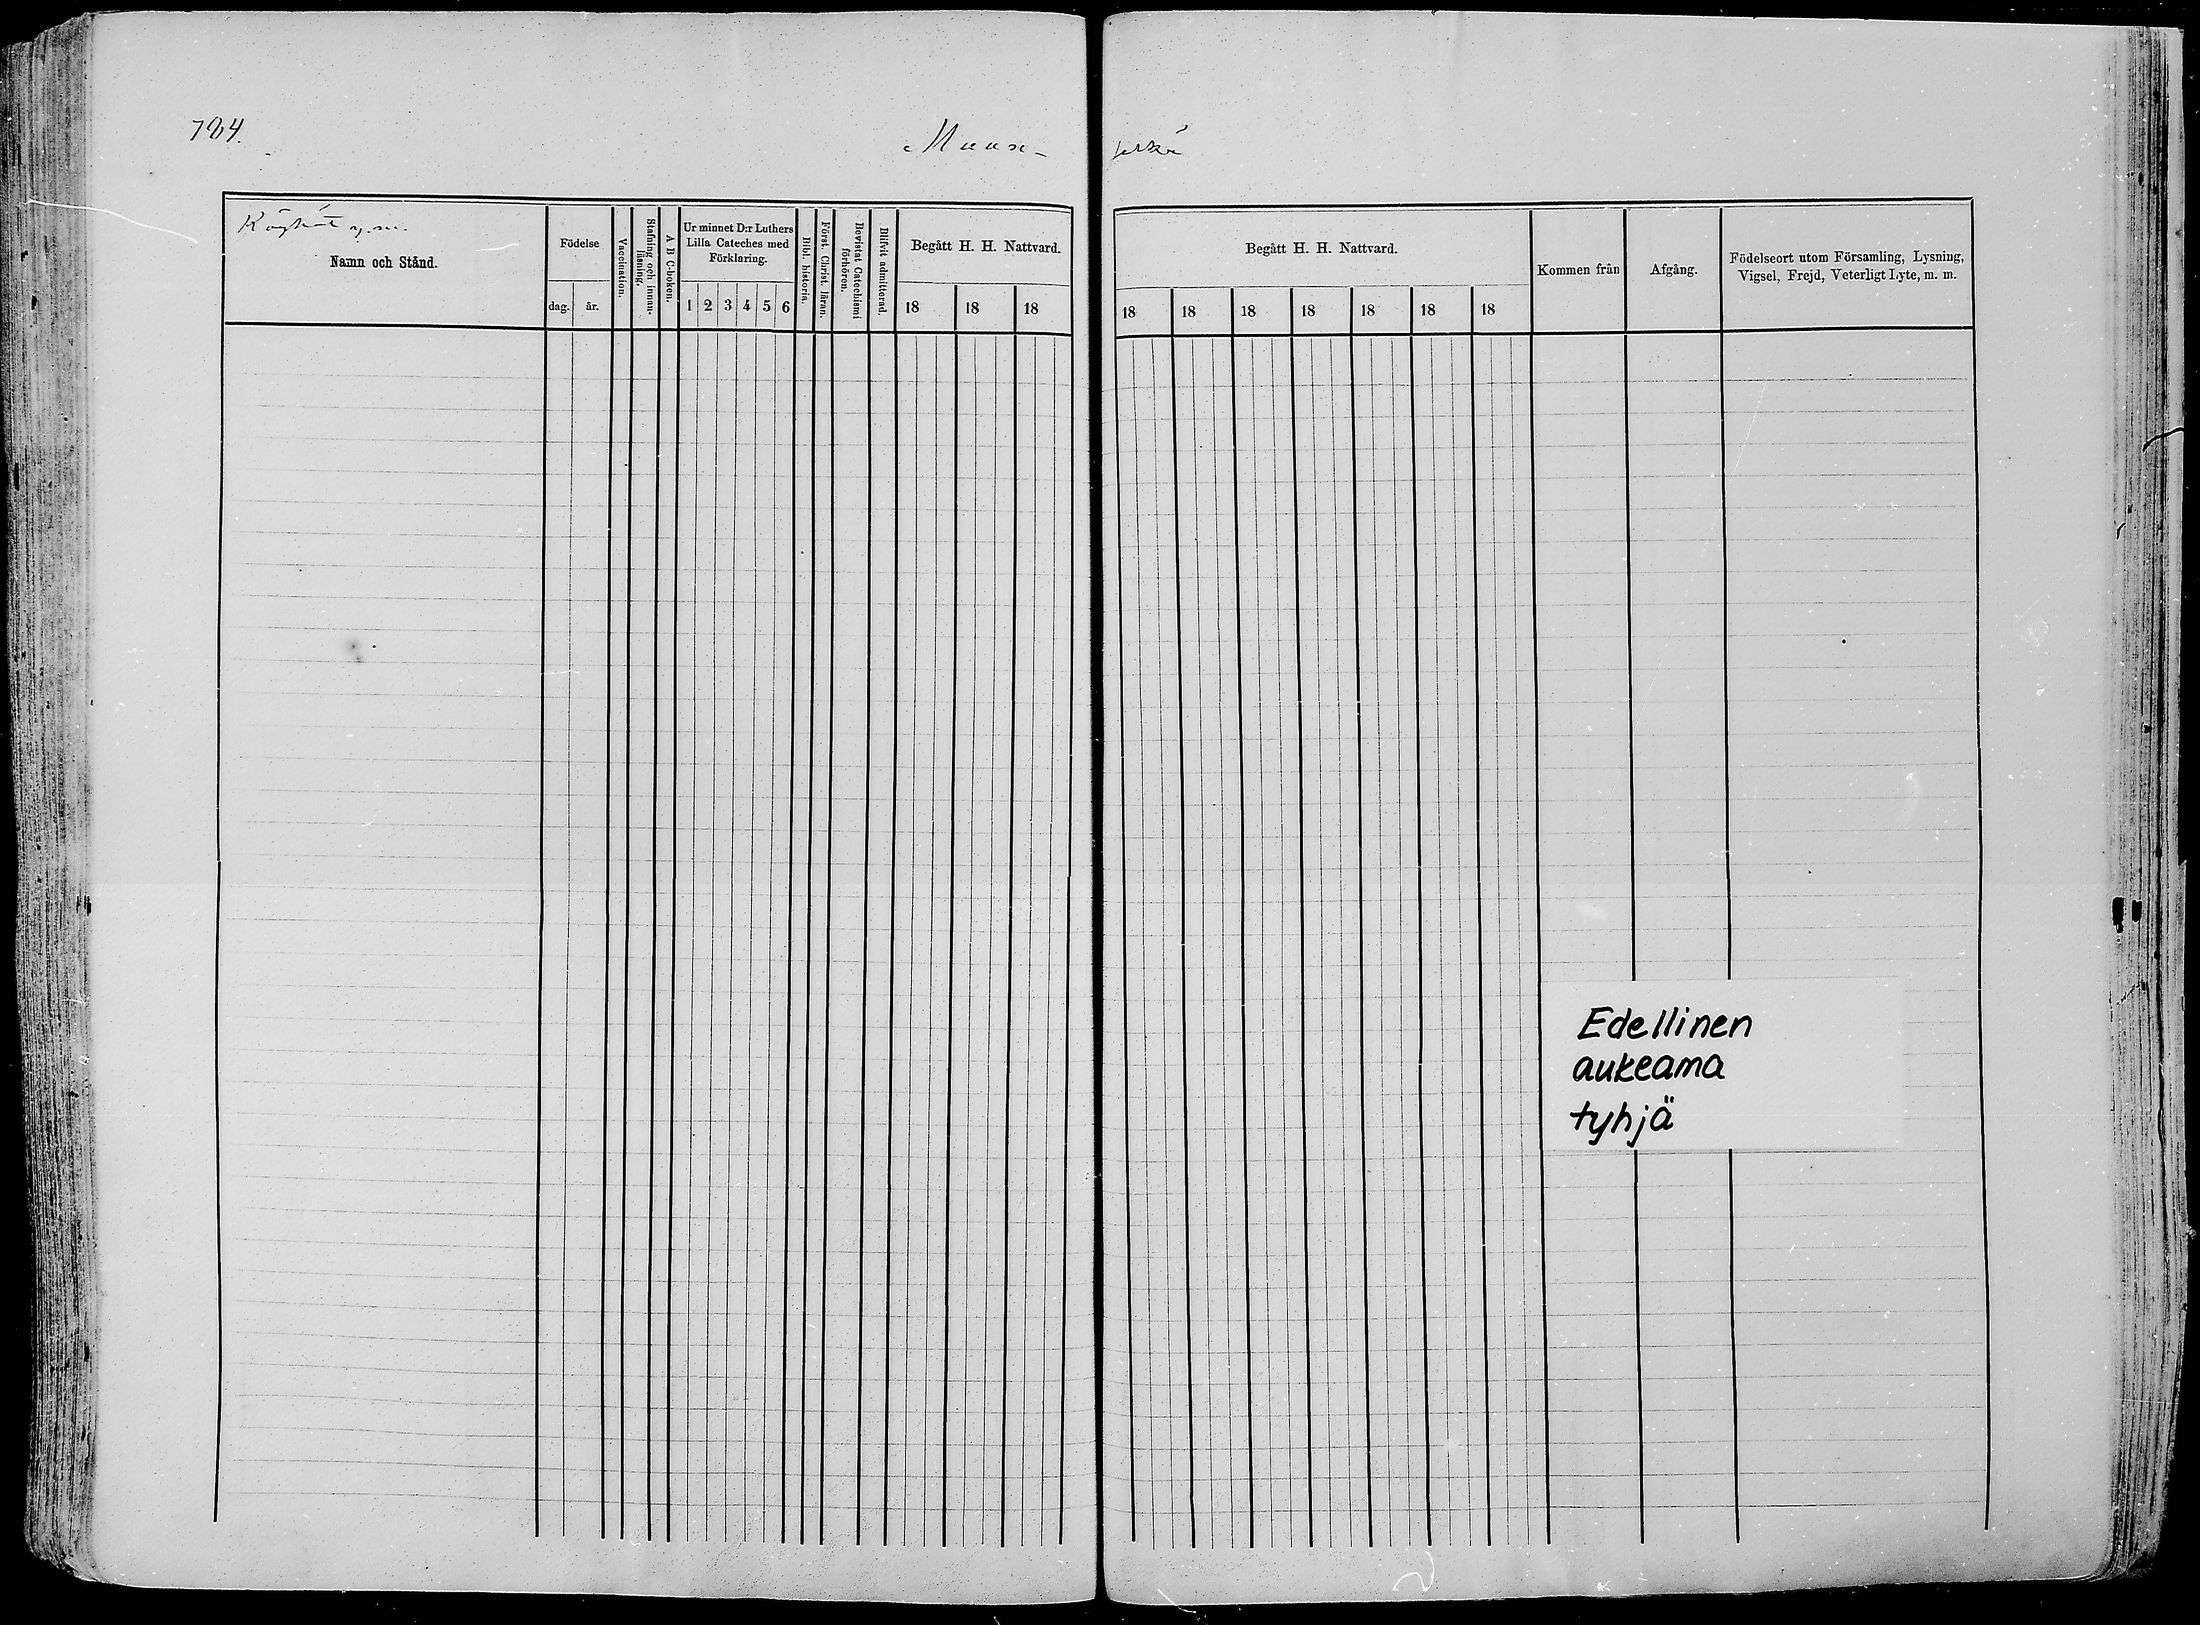 784.
Muura-
selkä
Namn och Stånd.
Födelse
dag.
år.
Vaccination.
Stafning och innan-
läsning.
A B C-boken.
Ur minnet D:r Luthers
Lilla Cateches med
Förklaring.
1 2 3 4 5 6
Bibl. historia.
Först. Christ. läran.
Bevistat Catechismi
förhören.
Blifvit admitterad.
Begått H. H. Nattvard.
18 18 18
Begått H. H. Nattvard.
18 18 18 18 18 18 18
Kommen från
Afgång.
Födelseort utom Församling, Lysning,
Vigsel, Frejd, Veterligt Lyte, m. m.
Edellinen
aukeama
tyhjä